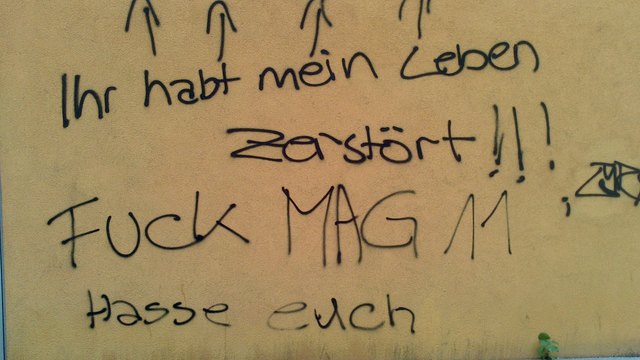 Ihr habt mein Leben
Zerstört!!!
FUCK MAG 11
Hasse euch